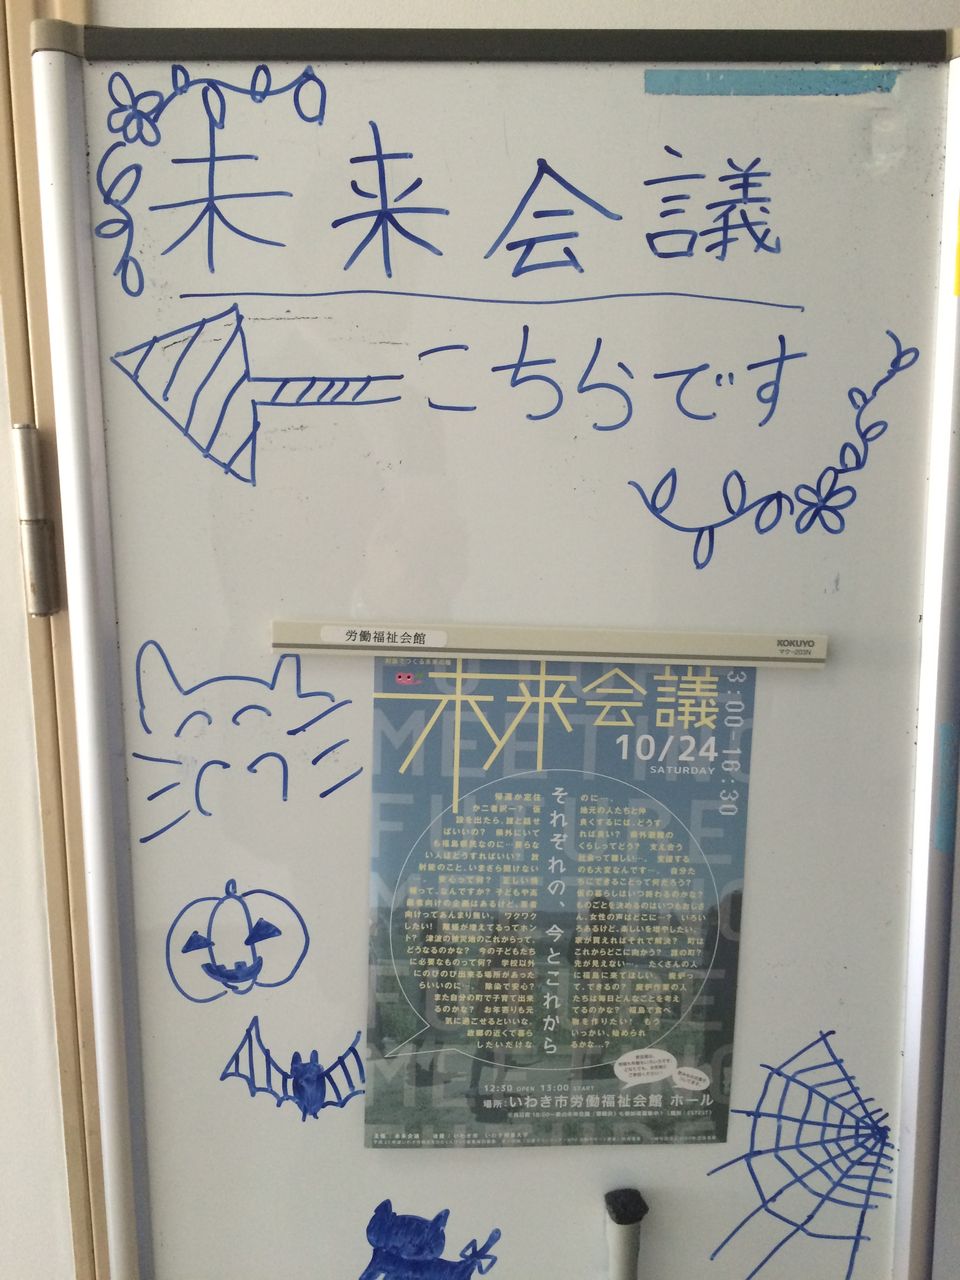 未来会議
こちらです
労働福祉会館
KOKUYO
マク-203N
未来会議
3:00-16:30
10/24
SATURDAY
それぞれの、今とこれから
のに…。
地元の人たちと仲
良くするには、どうす
れば良い？ 県外避難の
くらしってどう？ 支え合う
社会って難しい…。 支援する
のも大変なんです…。 自分た
ちにできることって何だろう？
仮の暮らしはいつ終わるのかな？
ものごとを決めるのはいつもおじさ
ん、女性の声はどこに…？ いろい
ろあるけど、楽しいを増やしたい。
家が買えればそれで解決？ 町は
これからどこに向かう？ 誰の町？
先が見えない…。 たくさんの人
に福島に来てほしい。 廃炉っ
て、できるの？ 廃炉作業の人
たちは毎日どんなことを考え
てるのかな？ 福島で食べ
物を作りたい！ もう
いっかい、始められ
るかな…？
帰還か定住
か二者択一？ 仮
設を出たら、誰と話せ
ばいいの？ 県外にいて
も福島県民なのに…戻らな
い人はどうすればいい？ 放
射能のこと、いまさら聞けない
…。 安心って何？ 正しい情
報って、なんですか？ 子どもや高
齢者向けの企画はあるけど、若者
向けってあんまり無い。 ワクワク
したい！ 離婚が増えてるってホン
ト？ 津波の被災地のこれからって、
どうなるのかな？ 今の子どもたち
に必要なものって何？ 学校以外
にのびのび出来る場所があった
らいいのに…。 除染で安心？
また自分の町で子育て出来
るのかな？ お年寄りも元
気に過ごせるといいな。
故郷の近くで暮ら
したいだけな
12:30 OPEN 13:00 START
場所：いわき市労働福祉会館 ホール